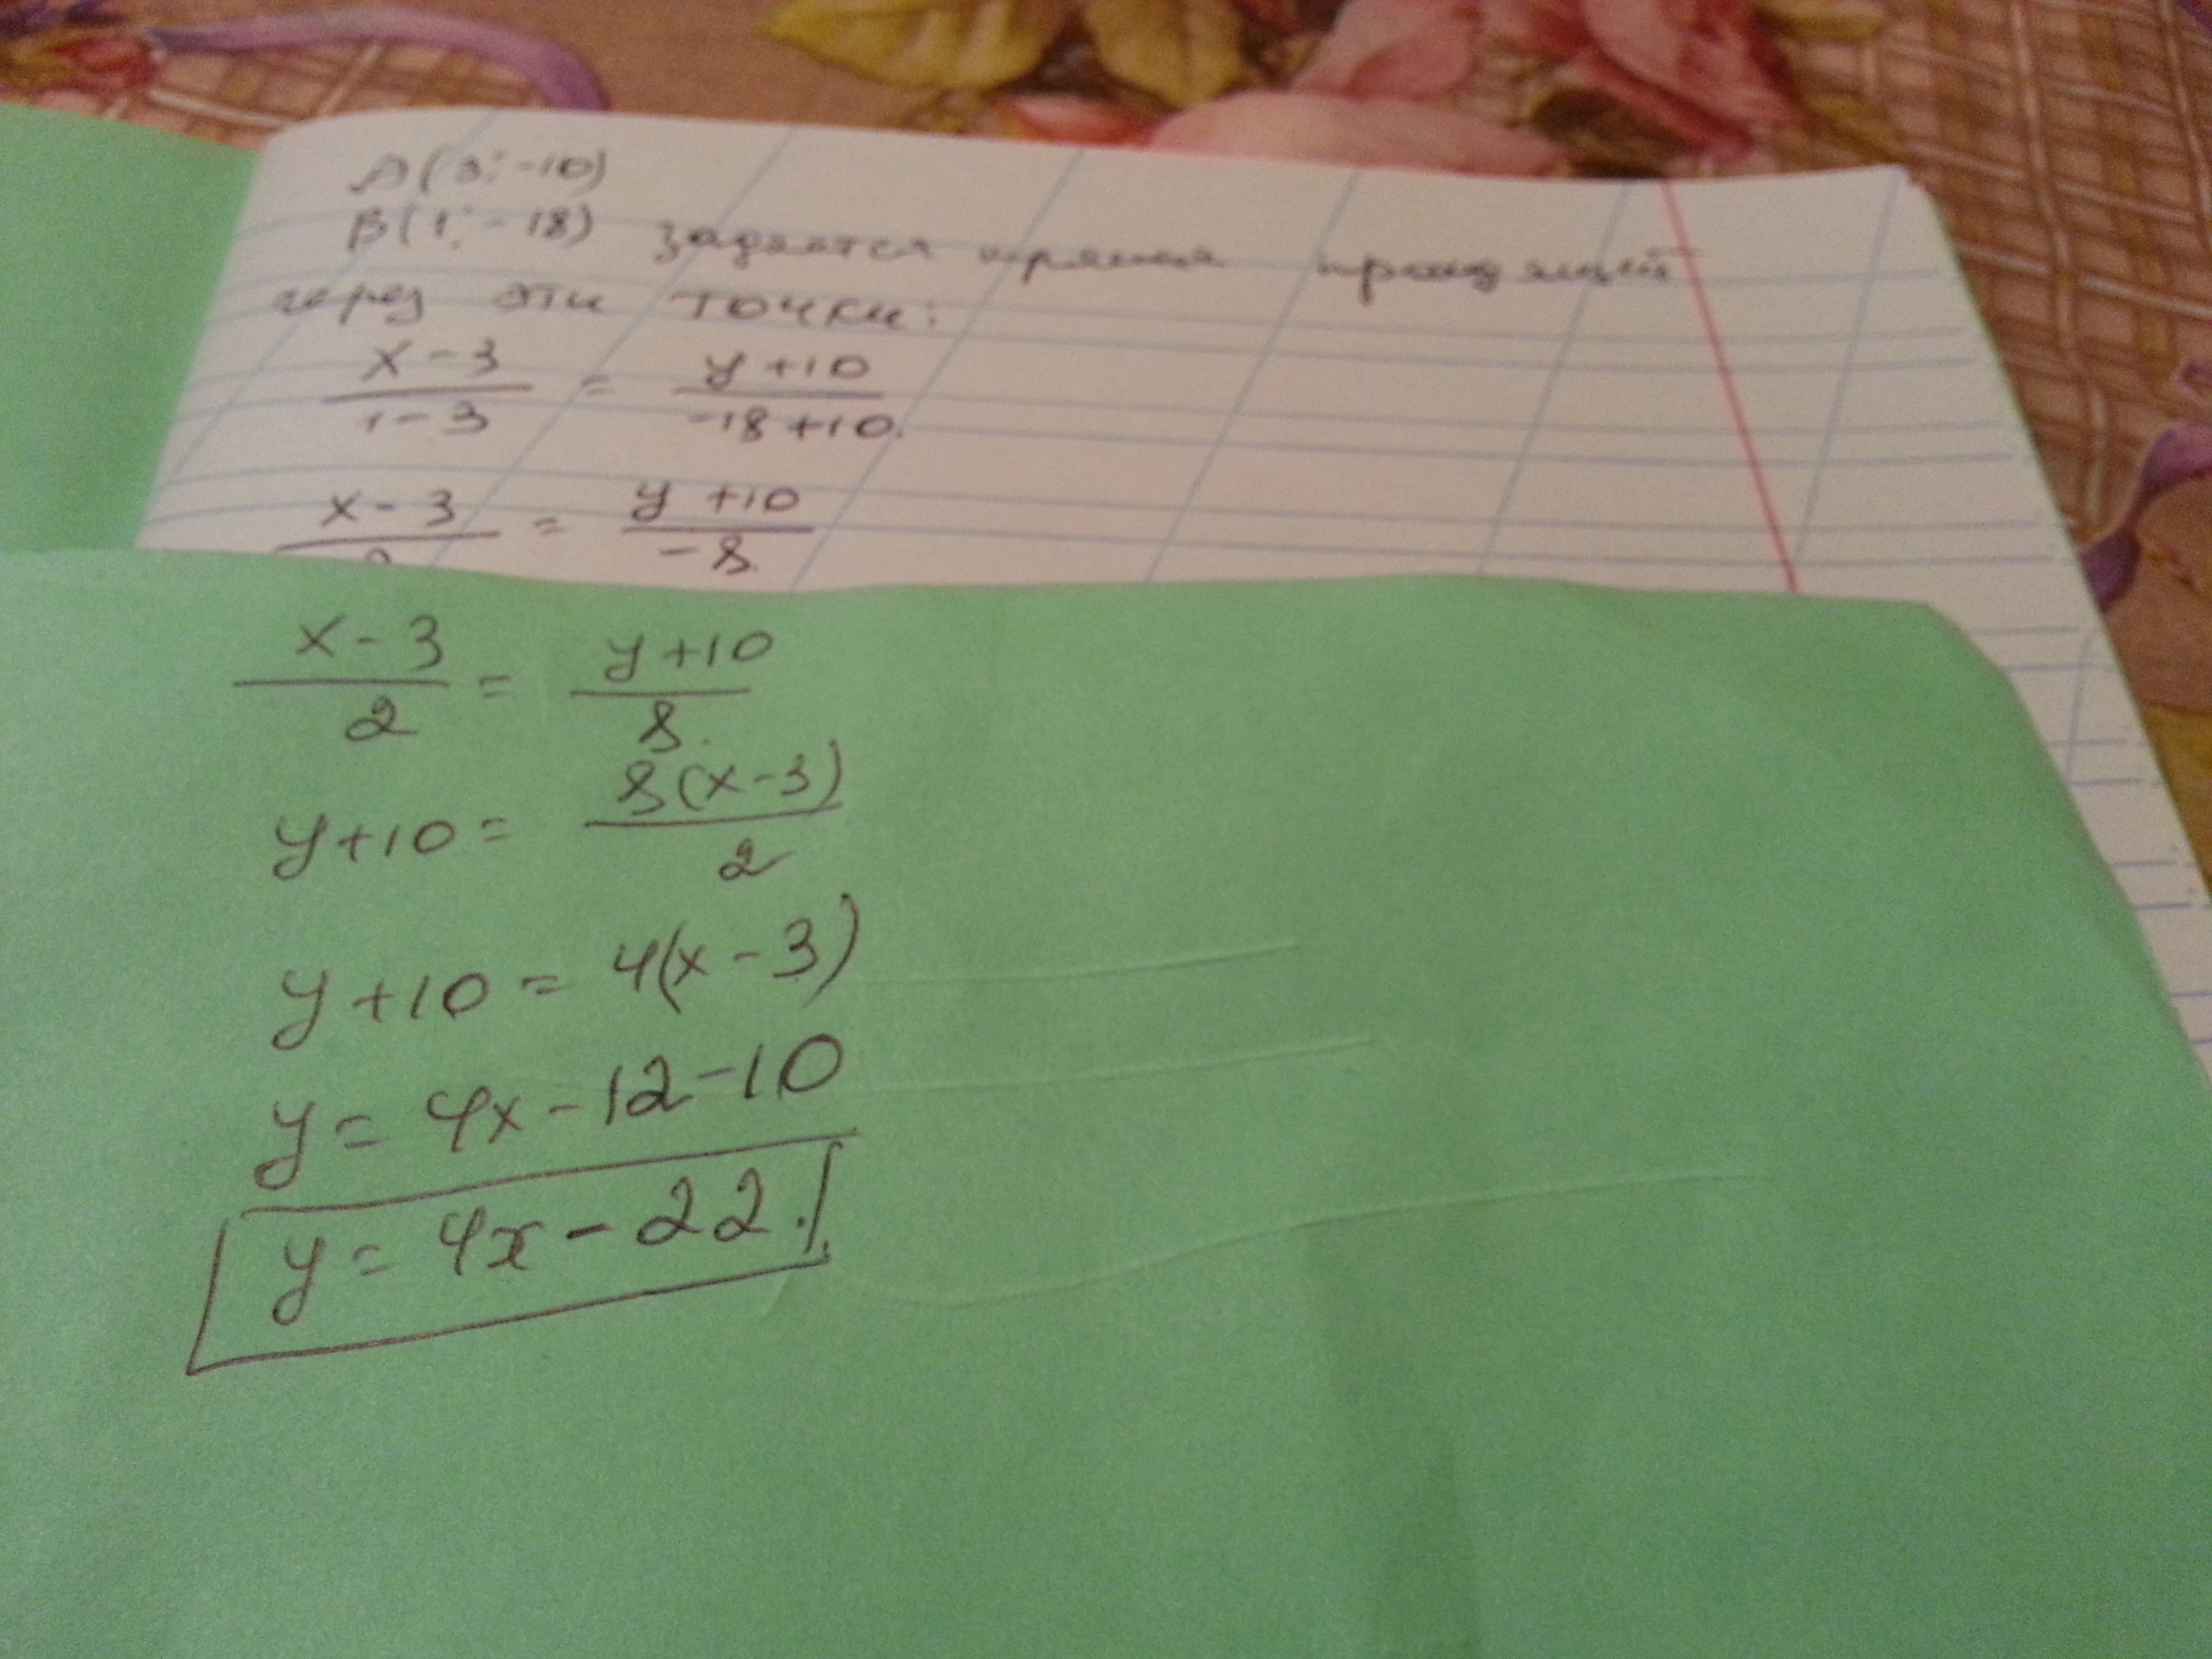 A(3; -10)
B(1; -18) задается прямая проходящей
через эти точки:
x-3/1-3 = y+10/-18+10.
x-3/ = y+10/-8.
x-3/2 = y+10/8.
y+10= 8(x-3)/2
y+10 = 4(x-3)
y= 4x-12-10
y= 4x-22.